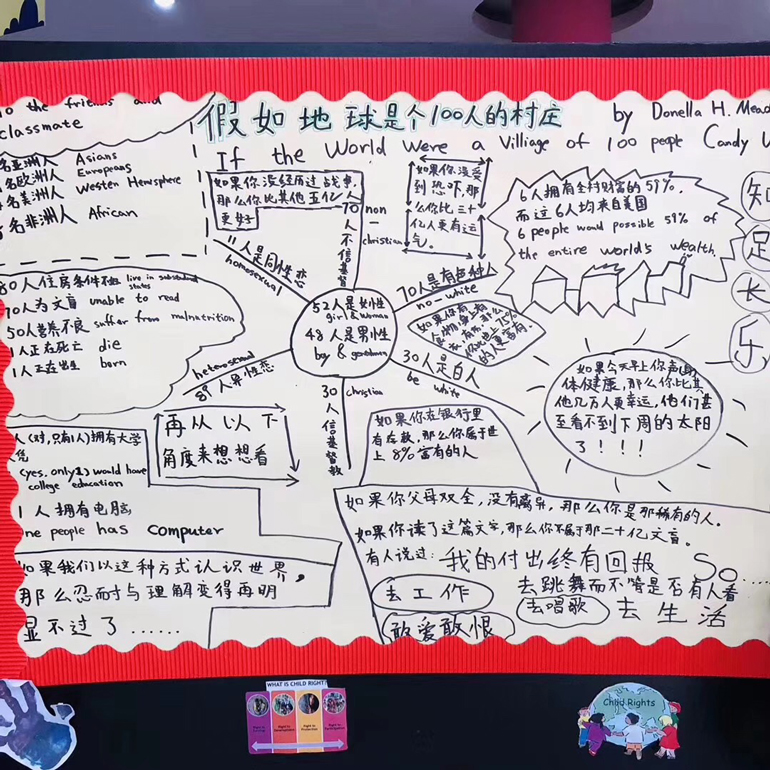 to the friends and
classmate
名亚洲人 Asians
名欧洲人 Europeans
名美洲人 Westen Hemsphere
名非洲人 African
假如地球是个100人的村庄
by Donella H. Mead
If the World Were a Villiage of 100 peopl Candy W
如果你没经历过战争,
那么你比其他五亿人
更好
70人不信基督
non-christian
如果你没受
到恐吓,那
么你比三十
亿人更有运
气。
6人拥有全村财富的59%.
而这6人均来自美国
6 people woud possible 59% of
the entire world's wealth.
知足长乐
11人是同性恋
homosexual
70人是有色种人
no-white
80人住房条件不好 live in
70人为文盲 unable to read
50人营养不良 suffer from malnutrition
1人正在死亡 die
1人正在出生 born
52人是女性
girl & woman
48人是男性
boy &
30人是白人
be white
heterosexual
89人异性恋
30人信基督教
christian
如果今天早上你
体健康,那么你比其
他几万人更幸运,他们甚
至看不到下周的太阳
了!!!
再从以下
角度来想想看
如果你在银行里
有存款,那么你属于世
上8%富有的人
人(对,只有1人)拥有大学
凭
(yes, only 1) would have
college education
1人拥有电脑
ne people has computer
如果我们以这种方式认识世界,
那么忍耐与理解变得再明
显不过了......
如果你父母双全,没有离异,那么你是那稀有的人.
如果你读了这篇文字,那么你不属于那二十亿文盲.
有人说过:我的付出终有回报 So....
去工作
去跳舞而不管是否有人看
去唱歌
去生活
敢爱敢恨
WHAT IS CHILD RIGHT?
Child Rights